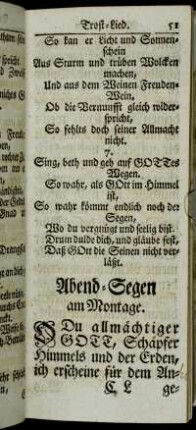 Trost-Lied. 51
So kan er Licht und Sonnen-
schein
Aus Sturm und trüben Wolcken
machen,
Und aus dem Weinen Freuden-
Wein,
Ob die Vernunfft gleich wider-
spricht,
So fehlts doch seiner Allmacht
nicht.
7.
Sing, beth und geh auf GOTTes
Wegen.
So wahr, als GOtt im Himmel
ist,
So wahr kömmt endlich noch der
Segen,
Wo du vergnügt und seelig bist.
Drum dulde dich, und gläube fest,
Daß GOtt die Seinen nicht ver-
läßt.
Abend-Segen
am Montage.
O Du allmächtiger
GOTT, Schöpfer
Himmels und der Erden,
ich erscheine für dem An-
ge-